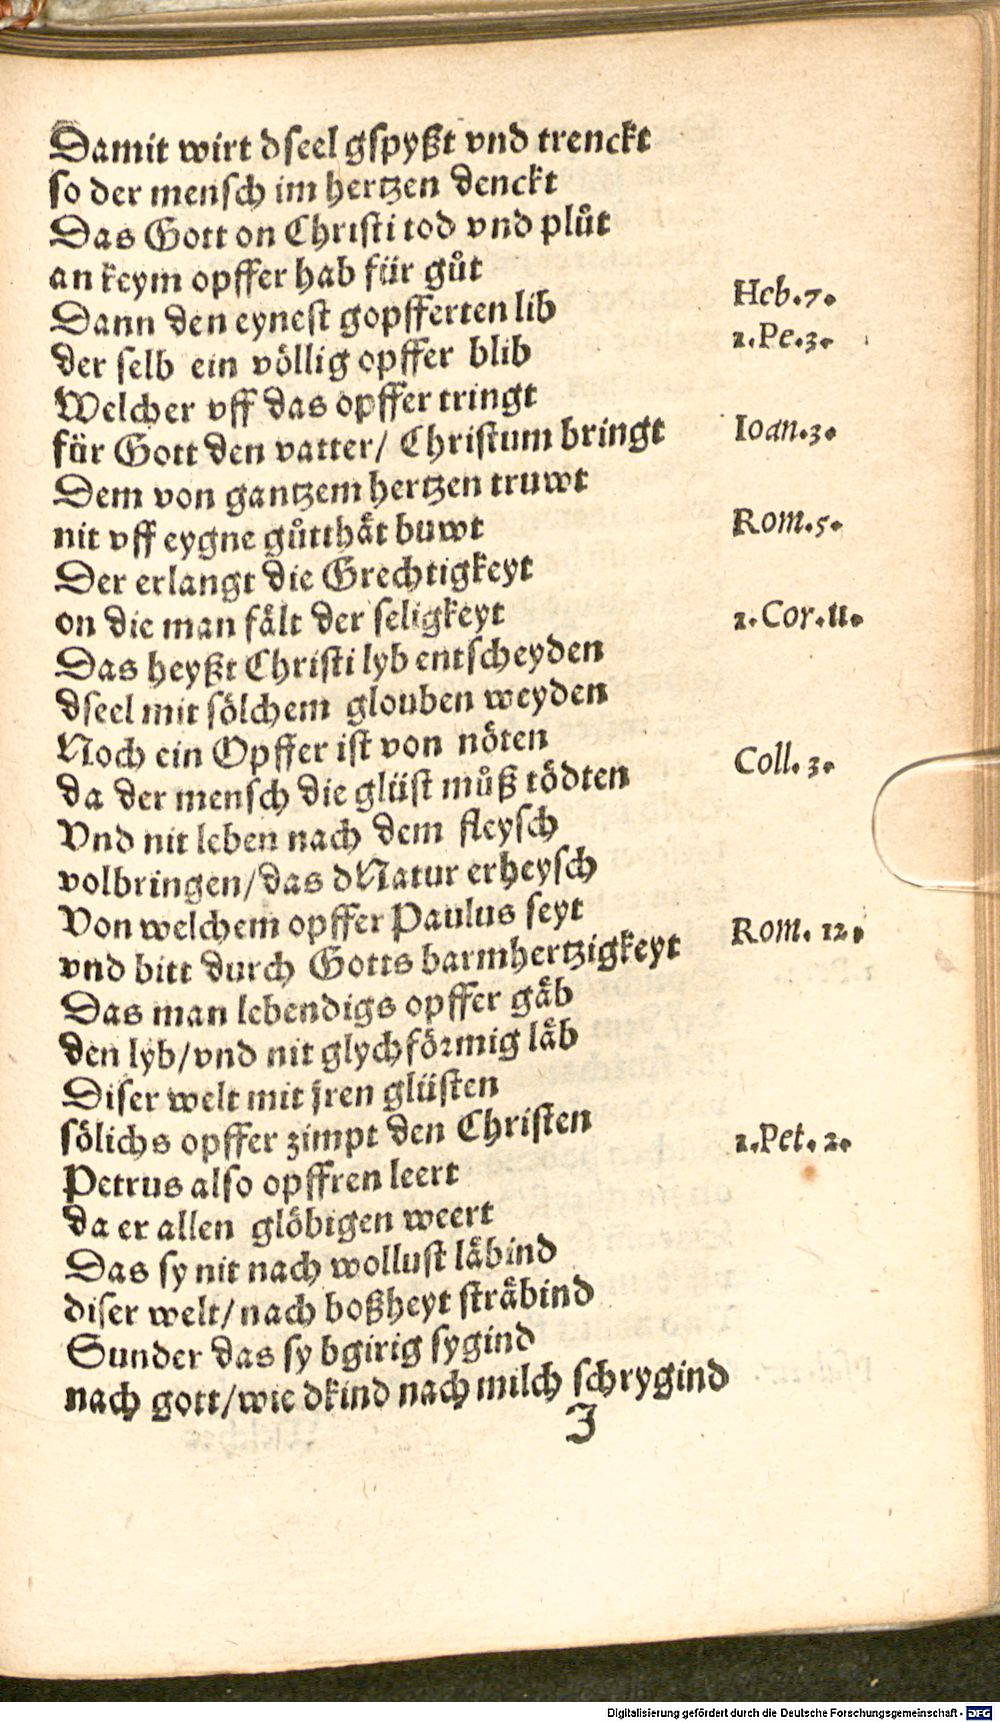 Damit wirt dseel gspyßt vnd trenckt
so der mensch im hertzen denckt
Das Gott on Christi tod vnd plůt
an keym opffer hab für gůt
Dann den eynest gopfferten lib
Heb.7.
der selb ein völlig opffer blib
1.Pe.3.
Welcher vff das opffer tringt
für Gott den vatter/ Christum bringt
Ioan.3.
Dem von gantzem hertzen truwt
nit vff eygne gůtthåt buwt
Rom.5.
Der erlangt die Grechtigkeyt
on die man fålt der seligkeyt
1.Cor.11.
Das heyßt Christi lyb entscheyden
dseel mit sölchem glouben weyden
Noch ein Opffer ist von nöten
da der mensch die glüst můß tödten
Coll.3.
Vnd nit leben nach dem fleysch
volbringen/das dNatur erheysch
Von welchem opffer Paulus seyt
vnd bitt durch Gotts barmhertzigkeyt
Rom. 12.
Das man lebendigs opffer gåb
den lyb/vnd nit glychförmig låb
Diser welt mit jren glüsten
sölichs opffer zimpt den Christen
1.Pet. 2.
Petrus also opffren leert
da er allen glöbigen weert
Das sy nit nach wollust låbind
diser welt/nach boßheyt stråbind
Sunder das sy bgirig sygind
nach gott/wie dkind nach milch schrygind
J
Digitalisierung gefördert durch die Deutsche Forschungsgemeinschaft - DFG